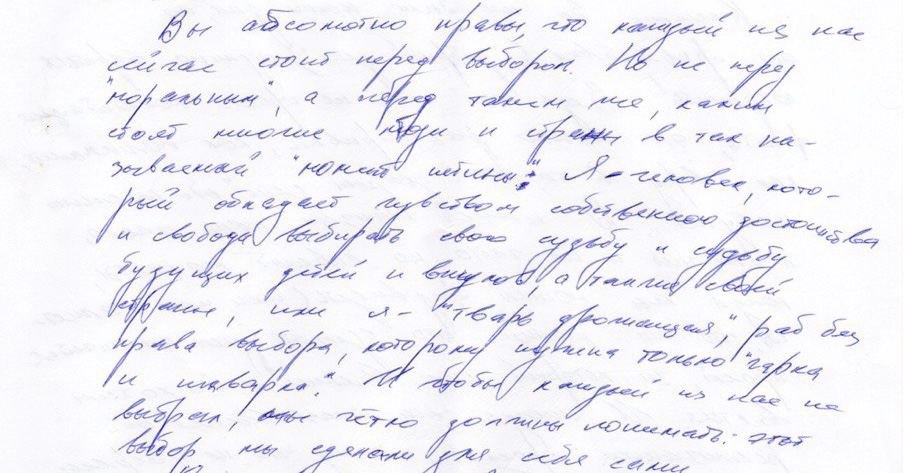 Вы абсолютно правы, что каждый из нас
сейчас стоит перед выбором. Но не перед
"моральным", а перед таким же, каким
стоят многие люди и страны в так на-
зываемый "момент истины". Я – человек, кото-
рый обладает чувством собственного достоинства
и свобода выбирать свою судьбу и судьбу
будущих детей и внуков, а также своей
страны, или я – "тварь дрожащая", раб без
права выбора, которому нужна только "чарка
и шкварка". И чтобы каждый из нас не
выбрал, мы чётко должны понимать: этот
выбор мы сделали для себя сами